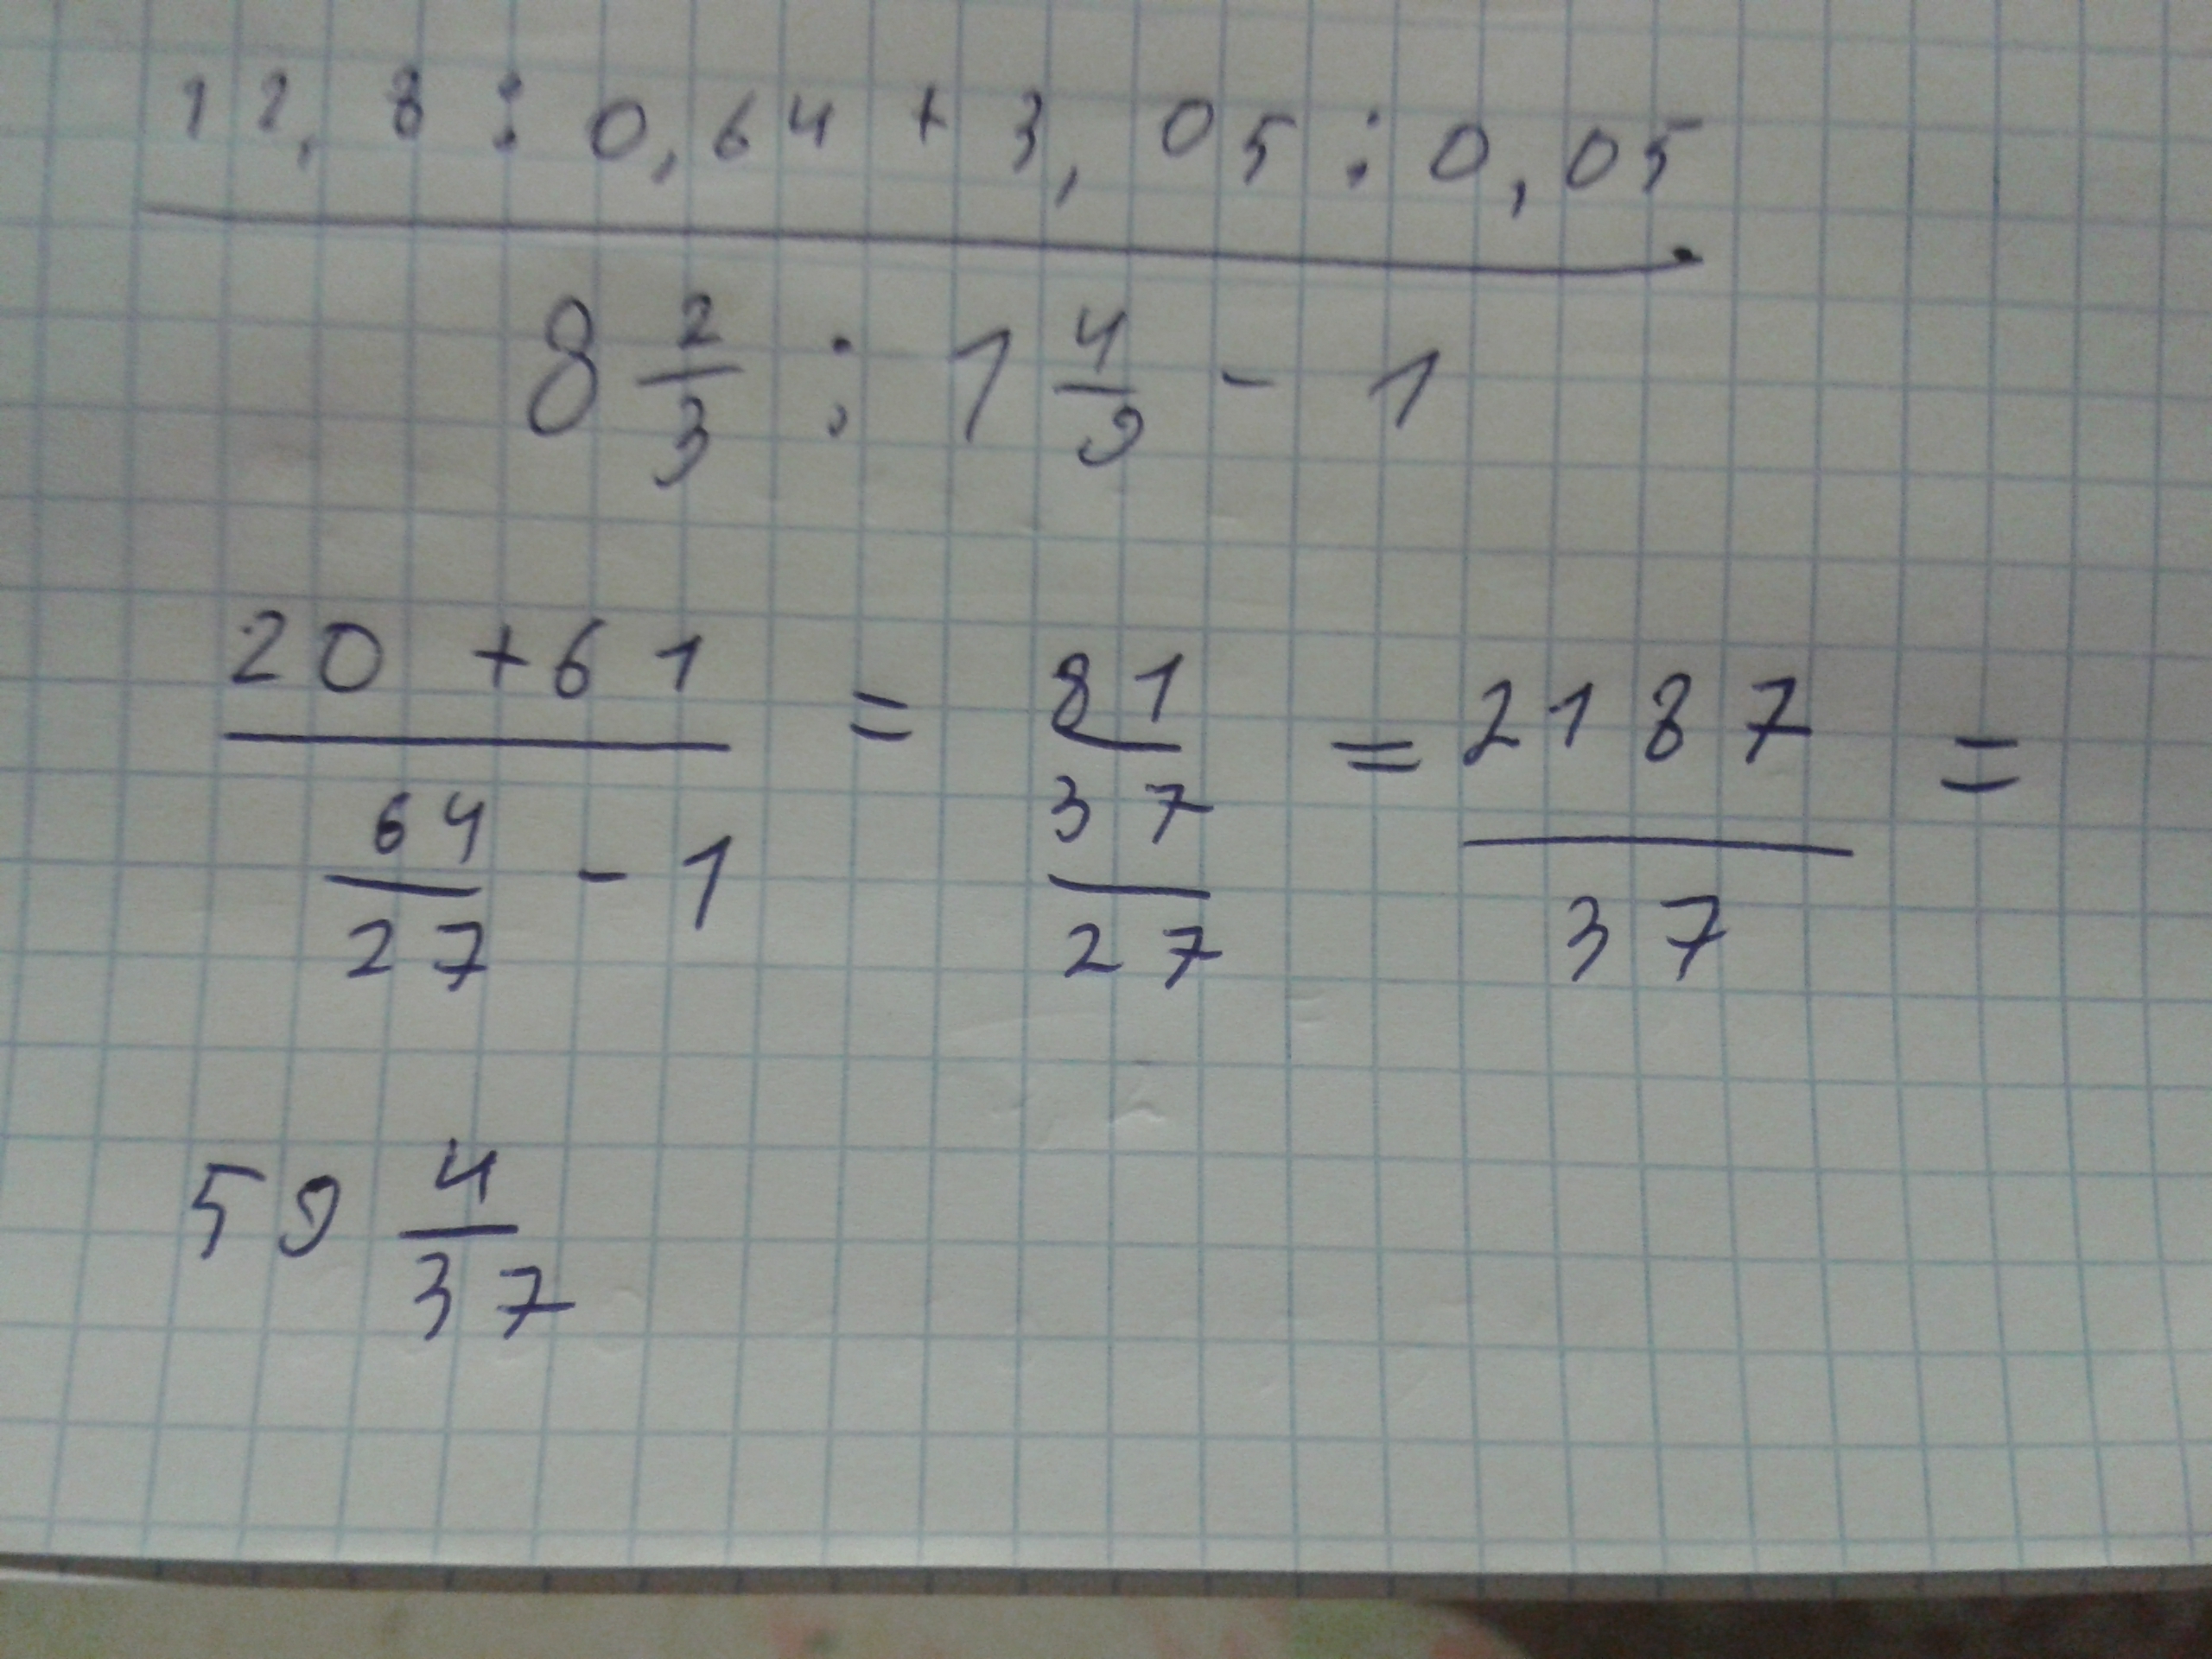 12,8 : 0,64 + 3,05 : 0,05
8 2/3 : 1 4/9 - 1
20 + 61 / (64/27 - 1) = 81 / (37/27) = 2187/37 =
59 4/37